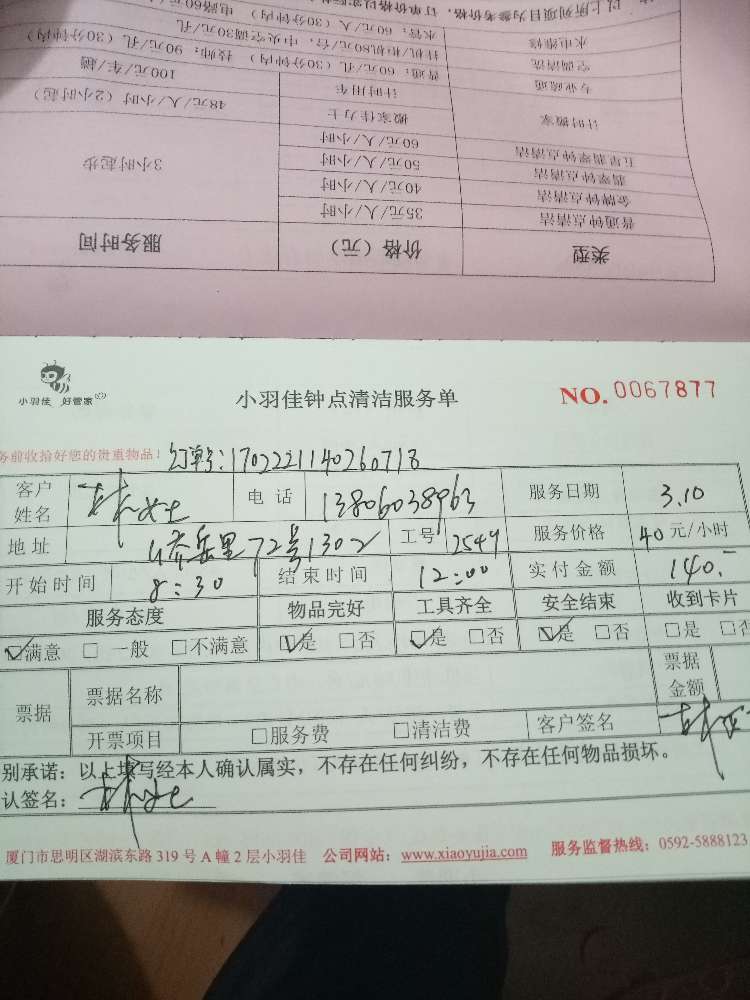 类型 价格（元） 服务时间
普通钟点清洁 35元/人/小时 3小时起步
金牌钟点清洁 40元/人/小时
翡翠钟点清洁 50元/人/小时
五星翡翠钟点清洁 60元/人/小时
计时搬家 搬家佳力士 48元/人/小时（2小时起）
计时用车 100元/车/趟
专业疏通 普通：60元/孔（30分钟内） 技师：90元/孔（30分钟内）
空调清洗 挂机柜机80元/台，中央空调30元/孔
水电维修 水管：60元/人（30分钟内）电路60元
以上所列项目为参考价格，订单价格以实际
小羽佳 好管家
小羽佳钟点清洁服务单
NO. 0067877
务前收拾好您的贵重物品！
订单号：1702221140260718
客户姓名 林女士 电话 13806038963 服务日期 3.10
地址 乔岳里72号1302 工号 2549 服务价格 40元/小时
开始时间 8:30 结束时间 12:00 实付金额 140.-
服务态度 物品完好 工具齐全 安全结束 收到卡片
☑满意 □一般 □不满意 ☑是 □否 ☑是 □否 ☑是 □否 □是 □否
票据 票据名称 票据金额
开票项目 □服务费 □清洁费 客户签名 林
别承诺：以上填写经本人确认属实，不存在任何纠纷，不存在任何物品损坏。
认签名：林女士
厦门市思明区湖滨东路319号A幢2层小羽佳 公司网站：www.xiaoyujia.com 服务监督热线：0592-5888123